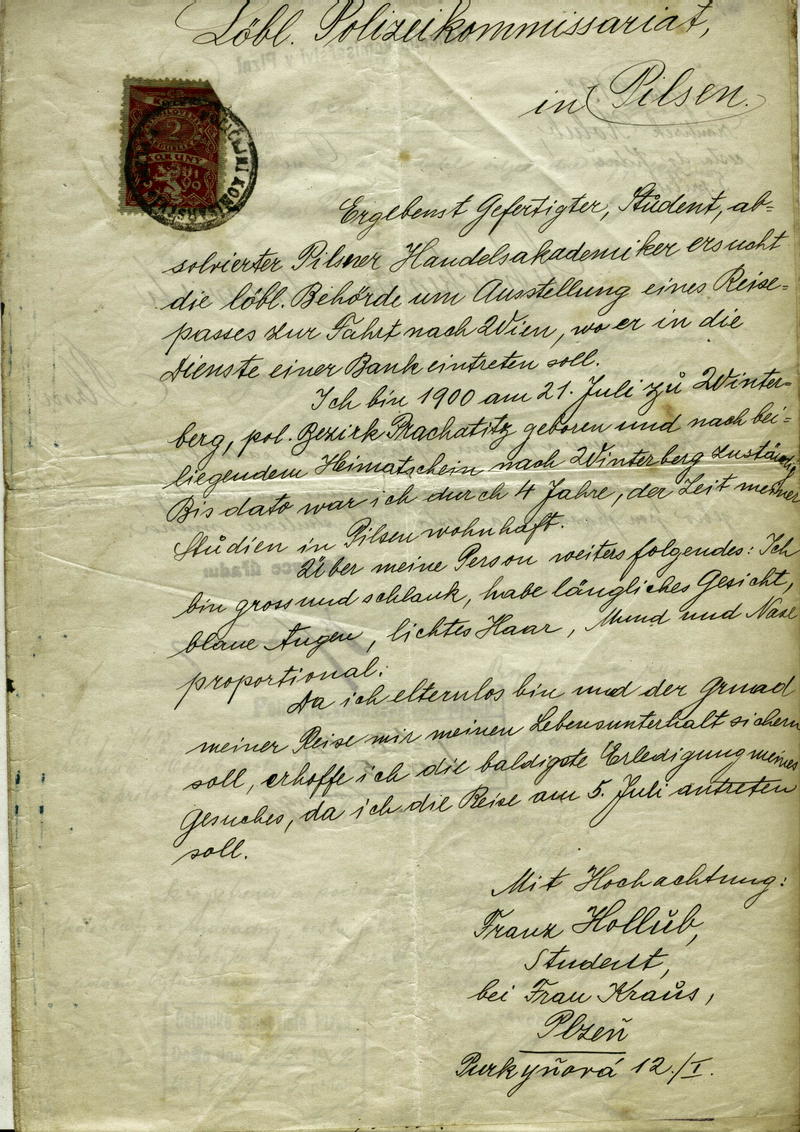 Löbl. Polizeikommissariat,
in Pilsen.
2
KORUNY
Ergebenst Gefertigter, Student, ab=
solvierter Pilsner Handelsakademiker ersucht
die löbl. Behörde um Ausstellung eines Reise=
passes zur Fahrt nach Wien, wo er in die
Dienste einer Bank eintreten soll.
Ich bin 1900 am 21. Juli zu Winter=
berg, pol. Bezirk Prachatitz geboren und nach bei=
liegendem Heimatschein nach Winterberg zuständig
Bis dato war ich durch 4 Jahre, der Zeit meiner
Studien in Pilsen wohnhaft.
Über meine Person weiters folgendes: Ich
bin gross und schlank, habe längliches Gesicht,
blaue Augen, lichtes Haar, Mund und Nase
proportional.
Da ich elternlos bin und der Grund
meiner Reise mir meinen Lebensunterhalt sichern
soll, erhoffe ich die baldigste Erledigung meines
Gesuches, da ich die Reise am 5. Juli antreten
soll.
Mit Hochachtung:
Franz Hollub,
Student,
bei Frau Kraus,
Plzeň
Purkyňová 12./I.